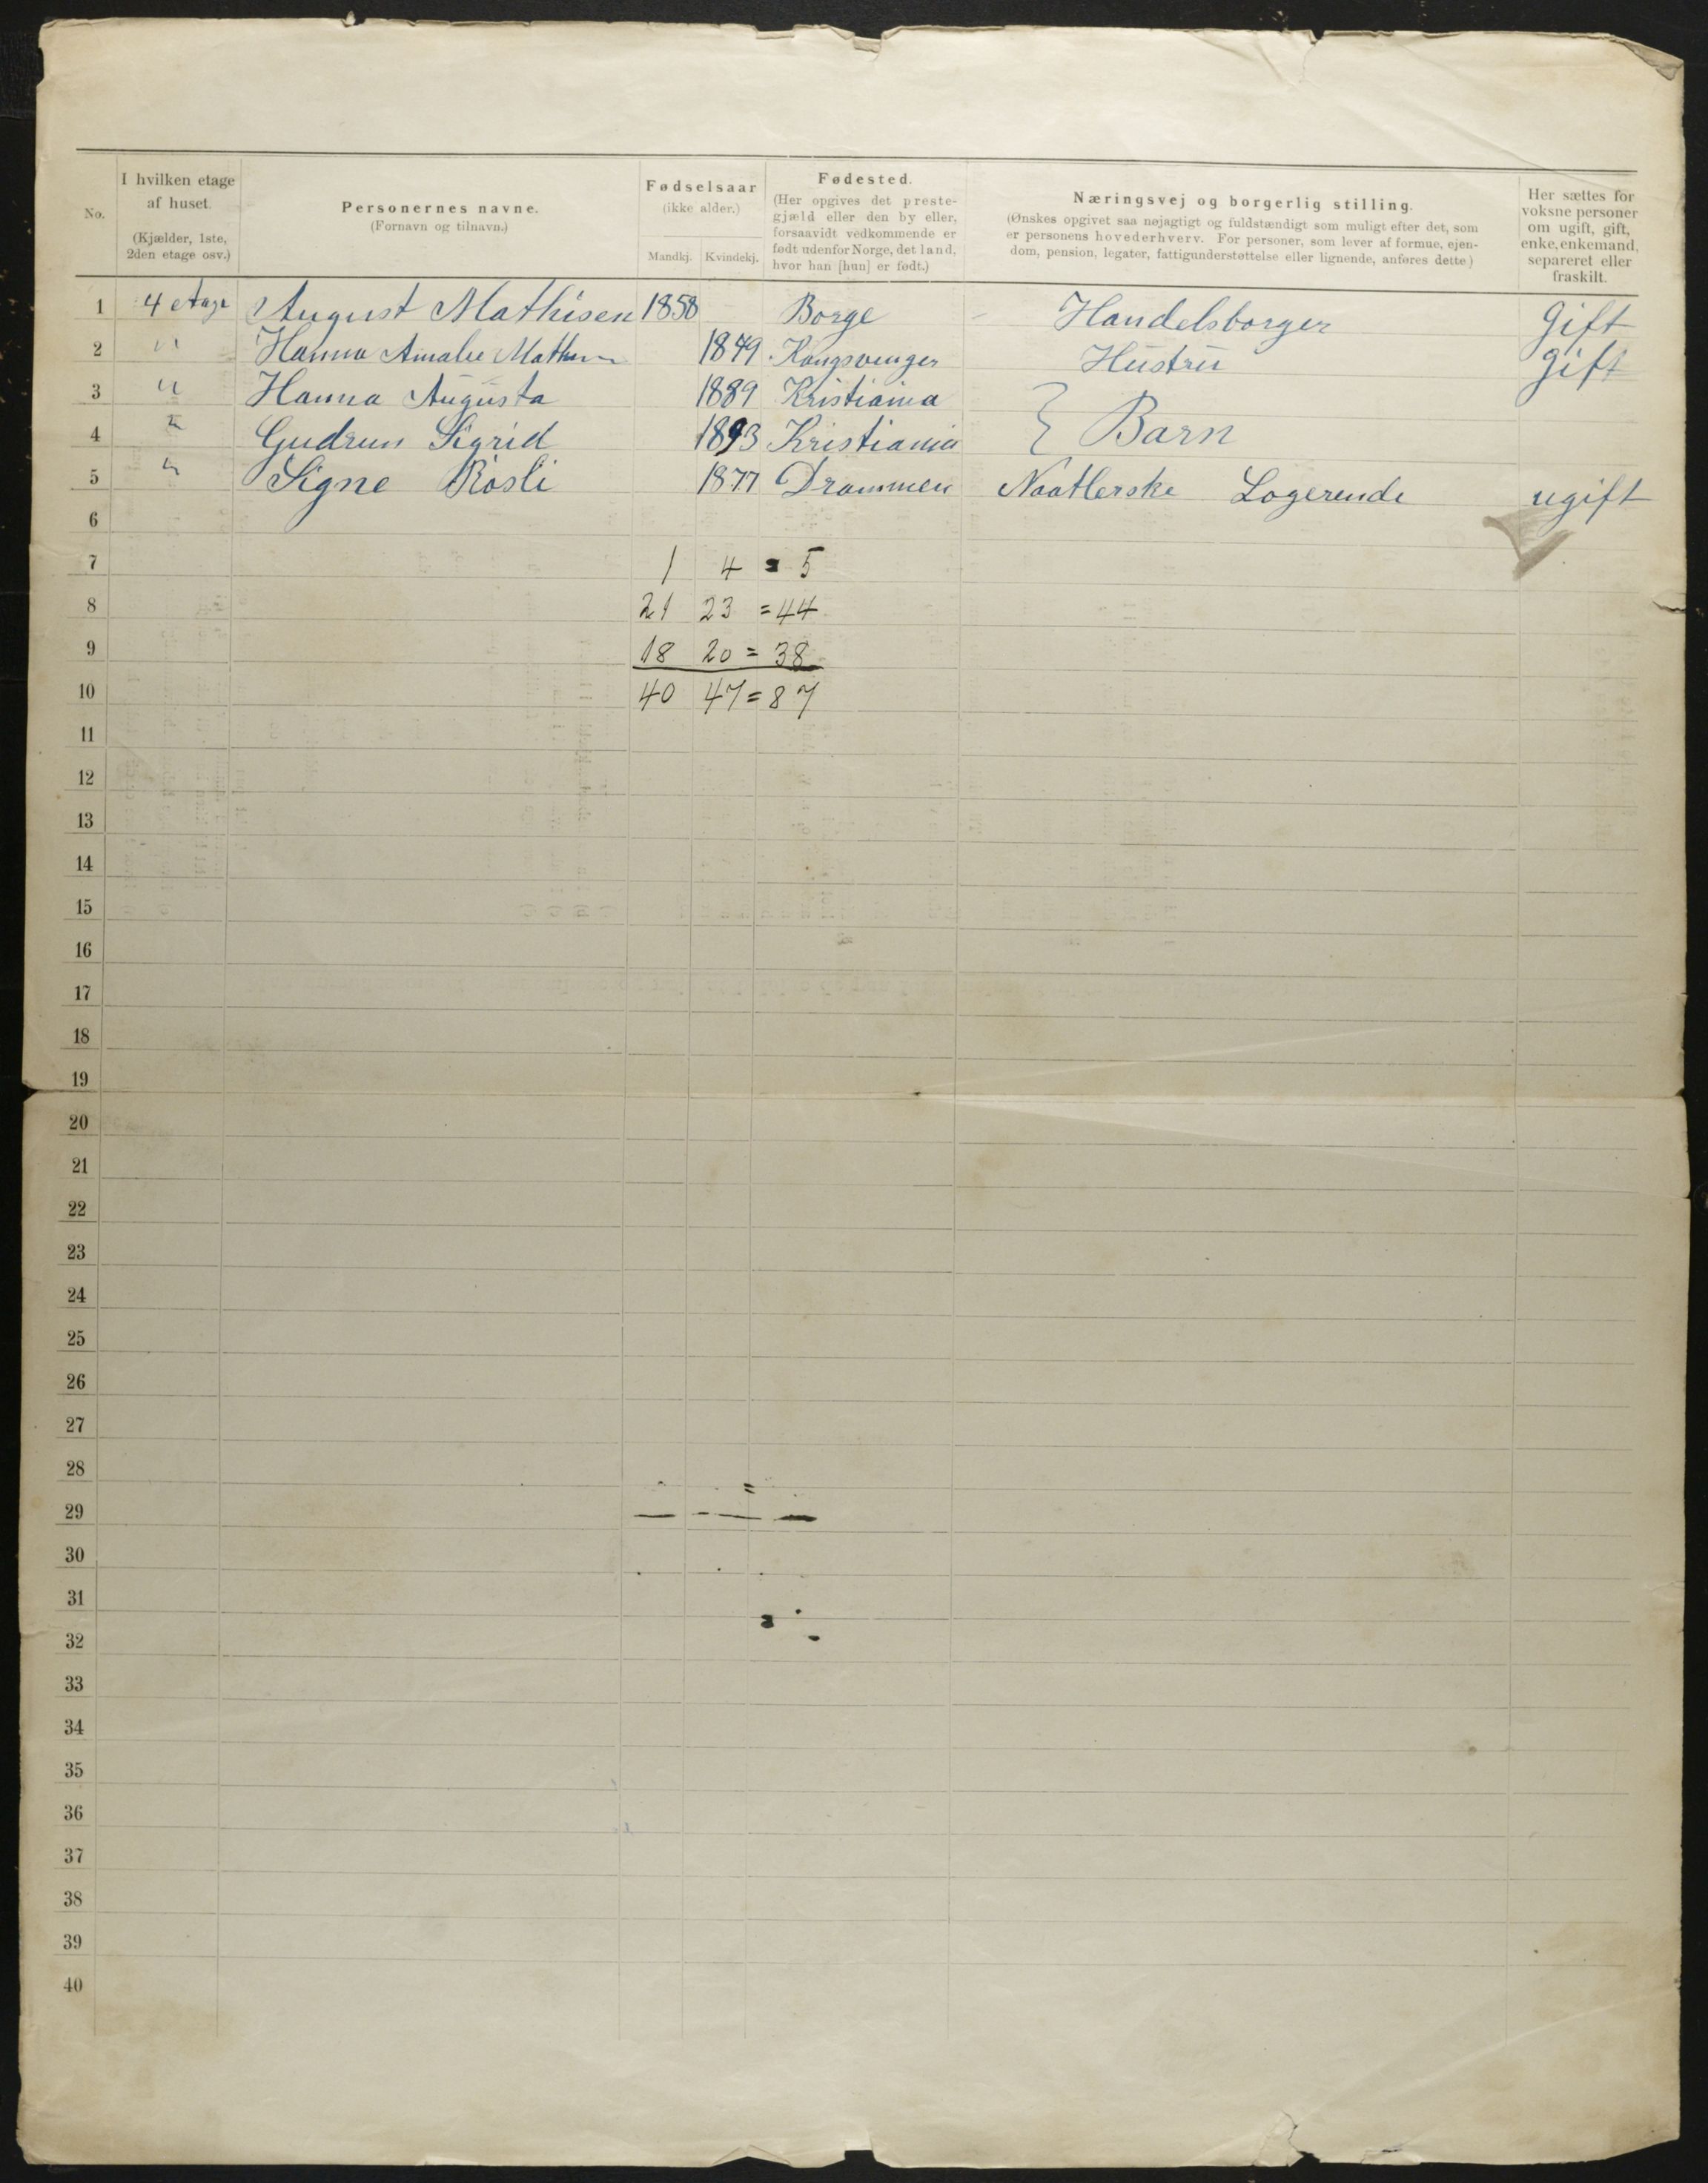 No.
I hvilken etage
af huset.
(Kjælder, 1ste,
2den etage osv.)
Personernes navne.
(Fornavn og tilnavn.)
Fødselsaar
(ikke alder.)
Mandkj. Kvindekj.
Fødested.
(Her opgives det preste-
gjæld eller den by eller,
forsaavidt vedkommende er
født udenfor Norge, det land,
hvor han [hun] er født.)
Næringsvej og borgerlig stilling.
(Ønskes opgivet saa nøjagtigt og fuldstændigt som muligt efter det, som
er personens hovederhverv. For personer, som lever af formue, ejen-
dom, pension, legater, fattigunderstøttelse eller lignende, anføres dette)
Her sættes for
voksne personer
om ugift, gift,
enke, enkemand,
separeret eller
fraskilt.
1 4 etage August Mathisen 1858 Borge Handelsborger Gift
2 " Hanna Amalie Mathisen 1849 Kongsvenger Hustru Gift
3 " Hanna Augusta 1889 Kristiania
4 " Gudrun Sigrid 1893 Kristiania } Barn
5 " Signe Rosli 1877 Drammen Naatlerske Logerende ugift
6
7 1 4 = 5
8 21 23 = 44
9 18 20 = 38
10 40 47 = 87
11
12
13
14
15
16
17
18
19
20
21
22
23
24
25
26
27
28
29
30
31
32
33
34
35
36
37
38
39
40